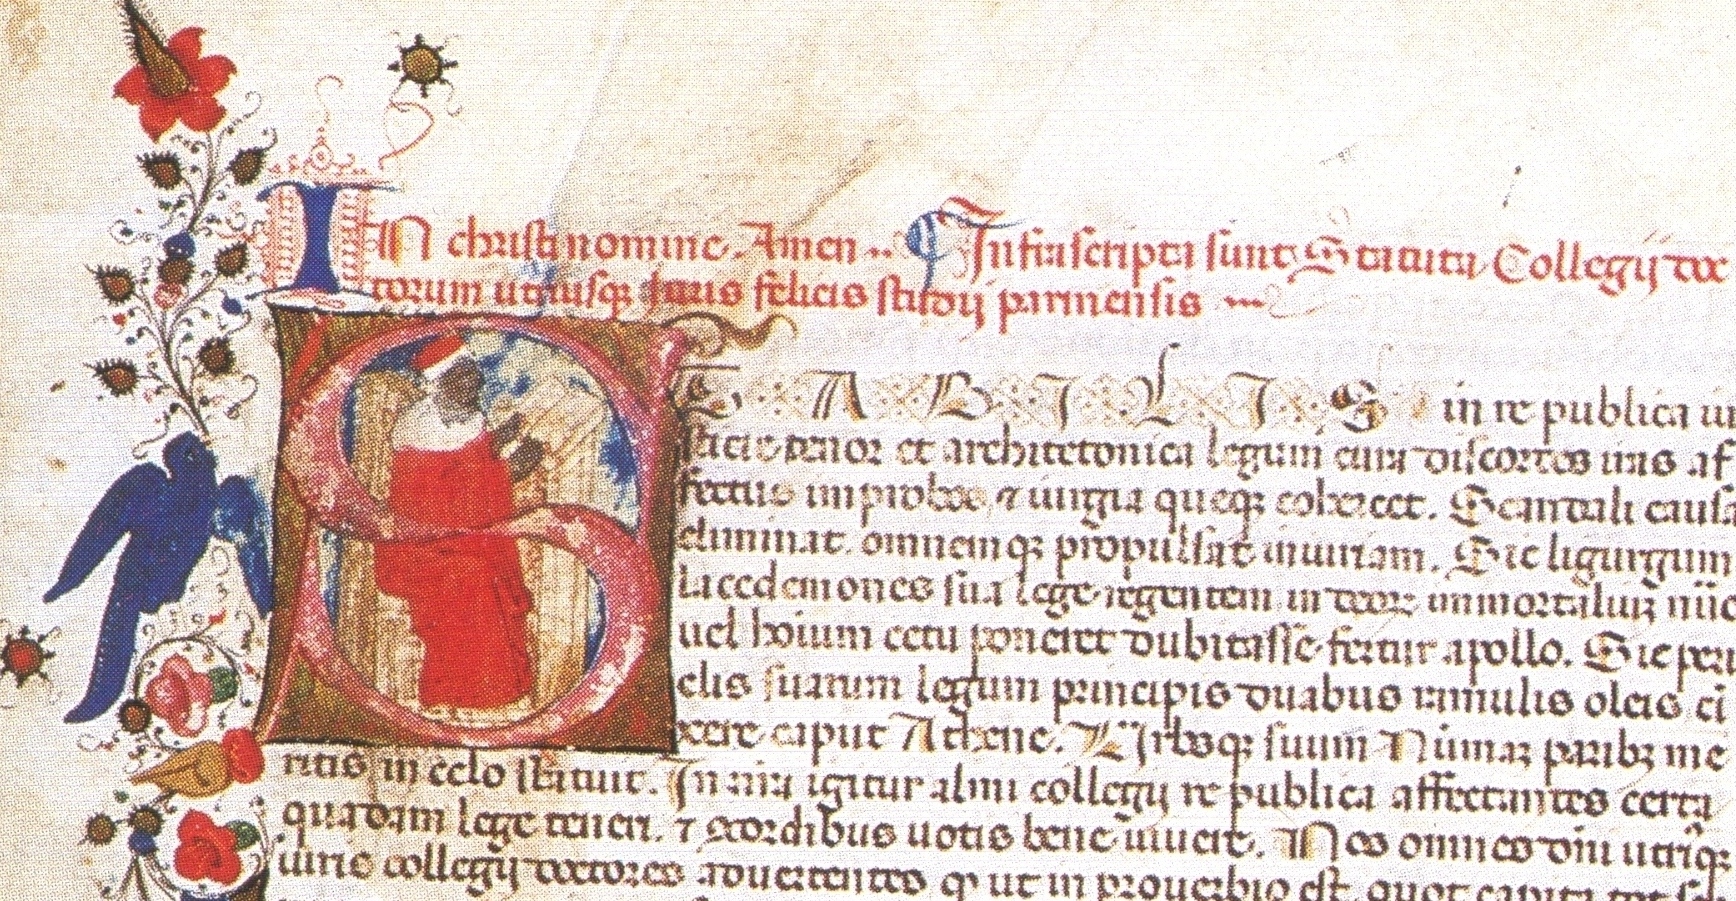 IN christi nomine. Amen.. Infrascripta sunt Statuta Collegij doc
torum utriusq iuris felicis studij parmensis
STABILIS in re publica iu
sticie tenor et architetonica legum cura discordes uris af
fectus improbos, ⁊ iurgia queq coherect. Scandali causa
eliminat. omnemq propulsat iniuriam. Sic ligurgum
lacedemones sua lege regentem in deor immortaliuz nūe
uel hoium cetu poneret dubitasse fertur apollo. Sic peri
clis suarum legum principis duabus ramulis oleis ci
xere caput Athene. Urbsq suum Numaz paribz me
ritis in celo statuit. In nra igitur almi collegij re publica affectantes certa
quadam lege teneri. ⁊ cordibus uotis bene uiuere. Nos omnes dni utriq
iuris collegij doctores aduertentes q ut in prouerbio est. quot capita tot